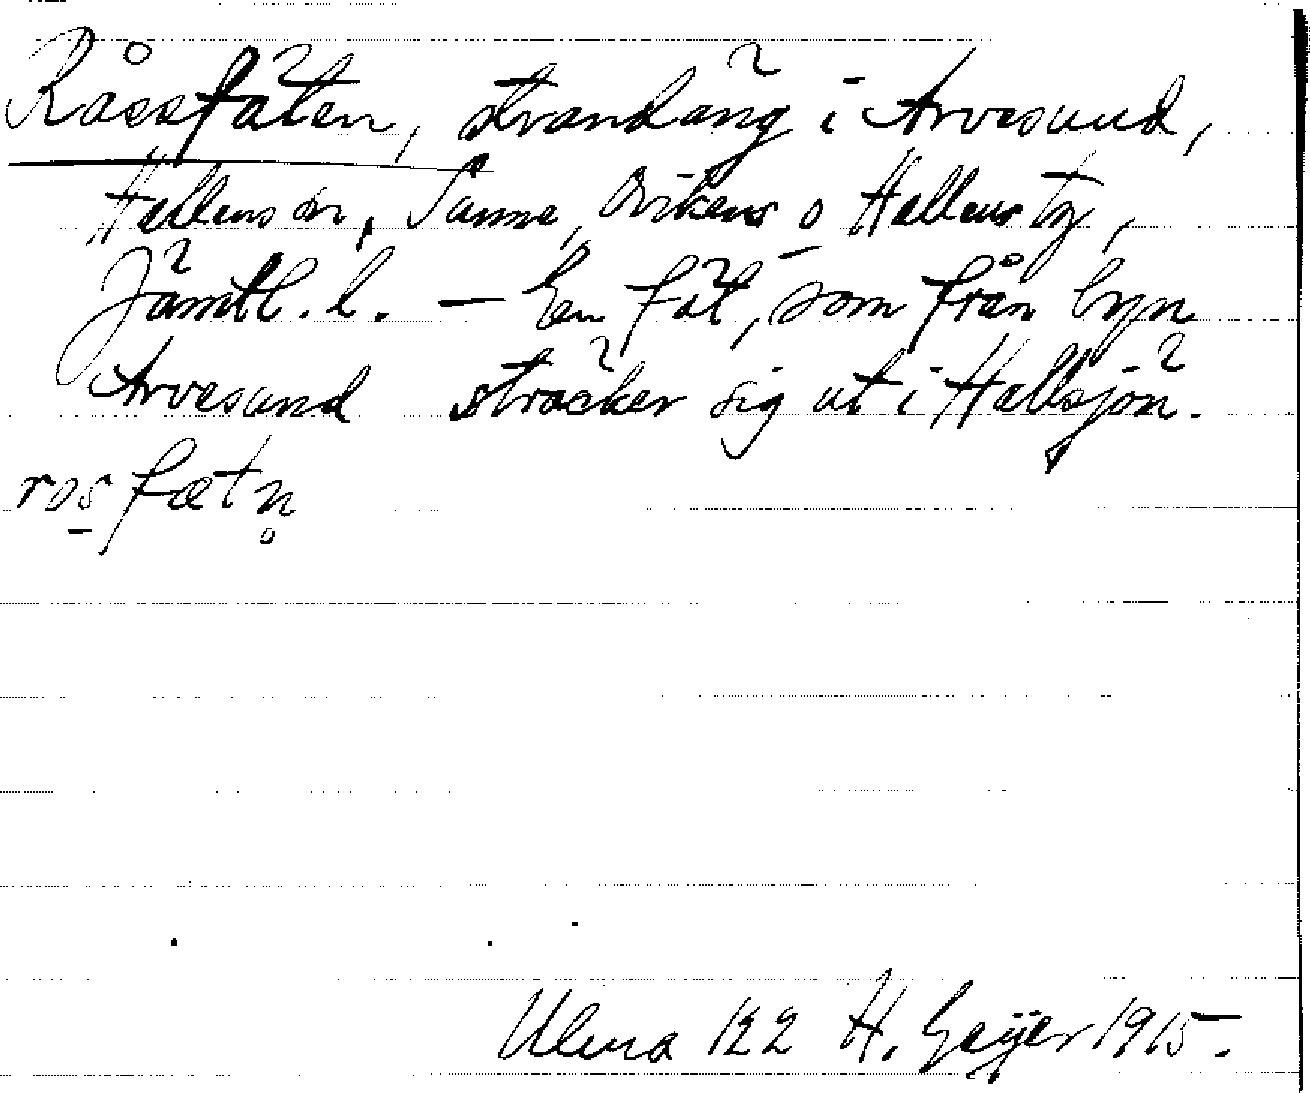 Råssfäten, strandäng i Arvesund,
Hallens sn, Sunne, Ovikens o Hallens tg,
Jämtl. l. — En fät, som från byn
Arvesund sträcker sig ut i Hallsjön.
ros fætn̥
Ulma 122 H. Geijer 1915.